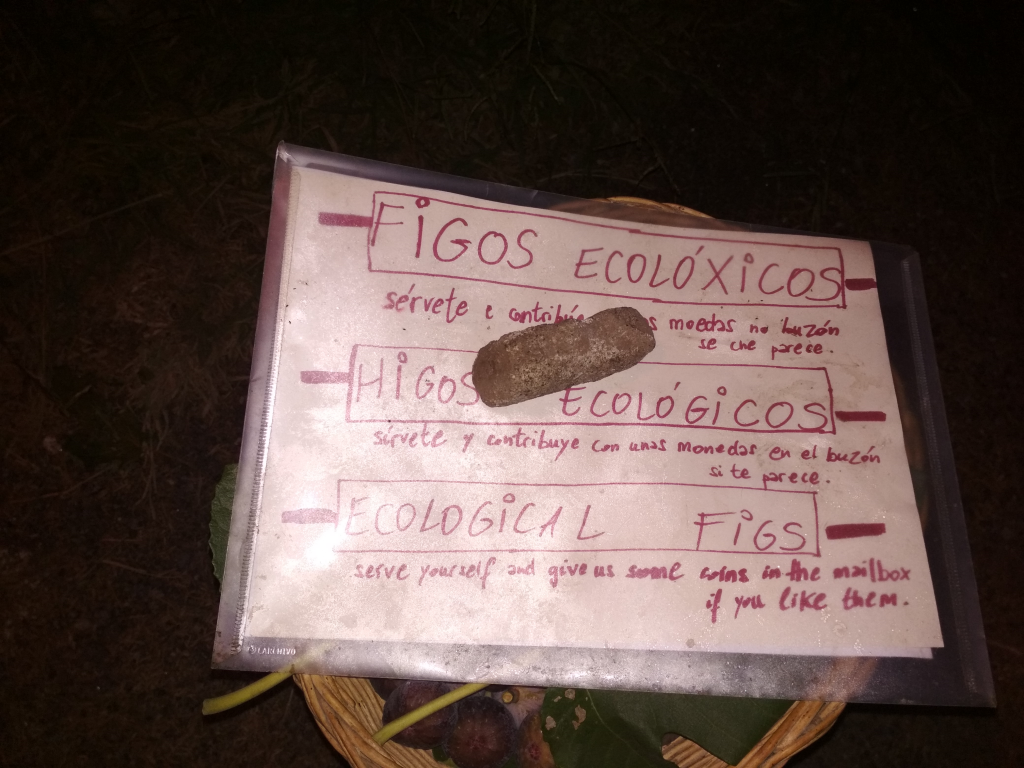 FIGOS ECOLÓXICOS
sérvete e contribúe s moedas no buzón
se che parece.
HIGOS ECOLÓGICOS
sírvete y contribuye con unas monedas en el buzón
si te parece.
ECOLOGICAL FIGS
serve yourself and give us some coins in the mailbox
if you like them.